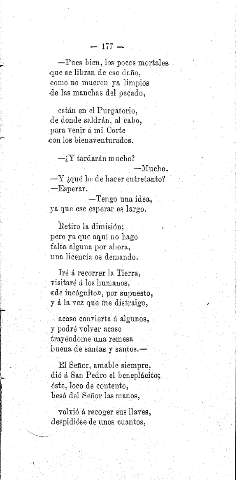 — 177 —
—Pues bien, los pocos mortales
que se libran de ese daño,
como no mueren ya limpios
de las manchas del pecado,
están en el Purgatorio,
de donde saldrán, al cabo,
para venir á mi Corte
con los bienaventurados.
—¿Y tardarán mucho?
—Mucho.
—Y ¿qué he de hacer entretanto?
—Esperar.
—Tengo una idea,
ya que ese esperar es largo.
Retiro la dimisión;
pero ya que aquí no hago
falta alguna por ahora,
una licencia os demando.
Iré á recorrer la Tierra,
visitaré á los humanos,
«de incógnito», por supuesto,
y á la vez que me distraigo,
acaso convierta á algunos,
y podré volver acaso
trayéndome una remesa
buena de santas y santos.—
El Señor, amable siempre,
dió á San Pedro el beneplácito;
éste, loco de contento,
besó del Señor las manos,
volvió á recoger sus llaves,
despidióse de unos cuantos,